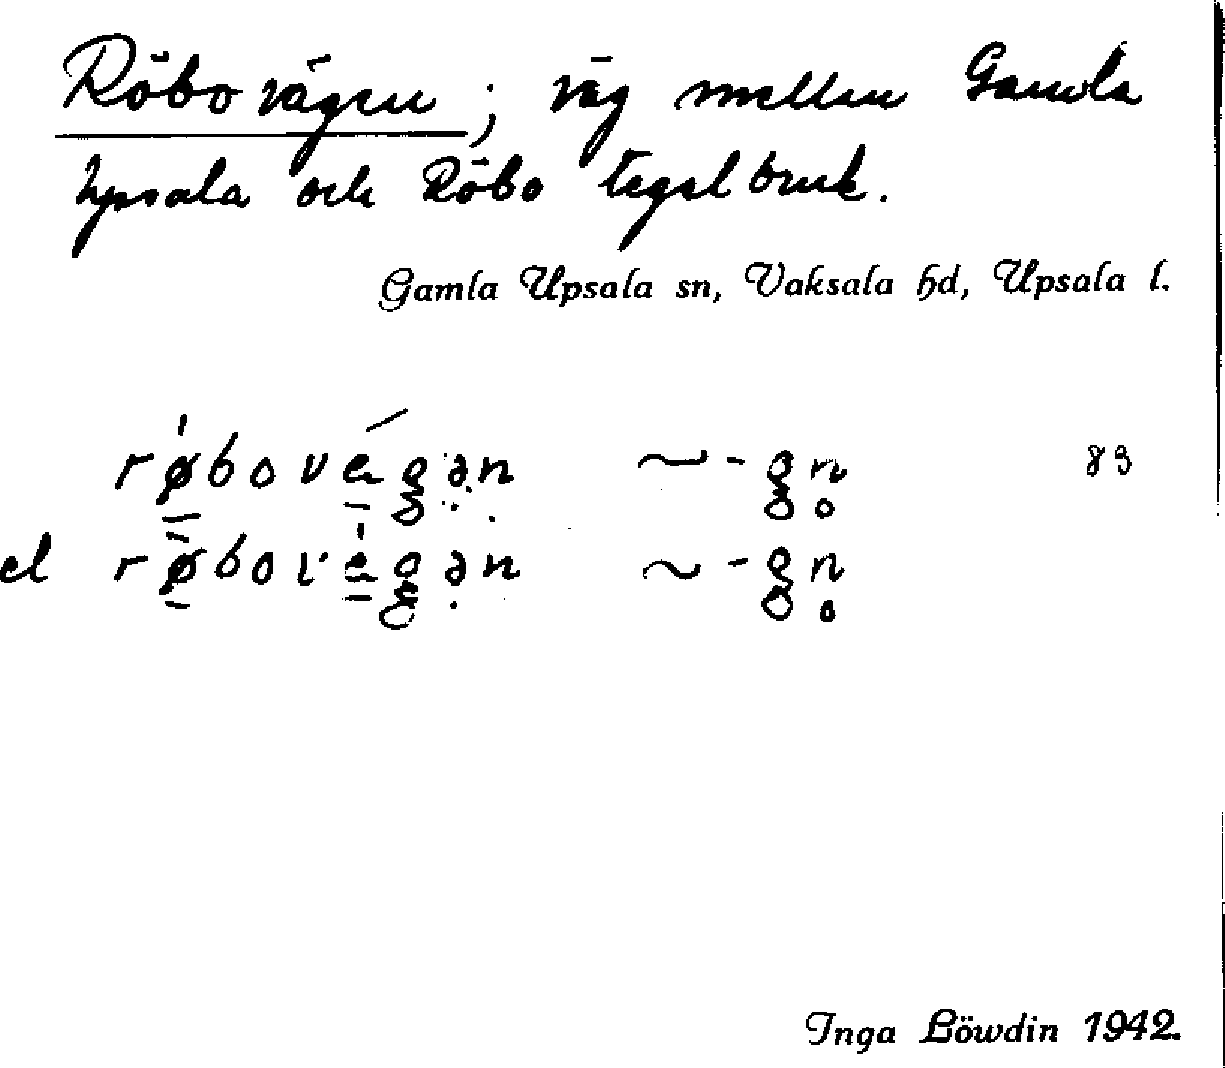 Röbovägen; väg mellan Gamla
Upsala och Röbo tegelbruk.
Gamla Upsala sn, Vaksala hd, Upsala l.
røbovägən ~-gn̥ 83
el røbovägən ~-gn̥
Inga Löwdin 1942.